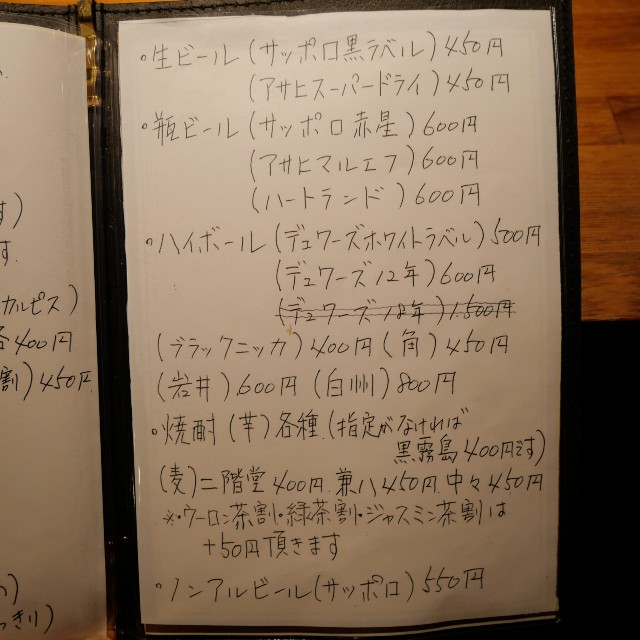 ・生ビール(サッポロ黒ラベル)450円
(アサヒスーパードライ)450円
・瓶ビール(サッポロ赤星)600円
(アサヒマルエフ)600円
(ハートランド)600円
・ハイボール(デュワーズホワイトラベル)500円
(デュワーズ12年)600円
(デュワーズ18年)1.500円
(ブラックニッカ)400円(角)450円
(岩井)600円(白州)800円
・焼酎(芋)各種.(指定がなければ
黒霧島400円です)
(麦)二階堂400円.兼八450円.中々450円
※・ウーロン茶割・緑茶割・ジャスミン茶割は
+50円頂きます
・ノンアルビール(サッポロ)550円
す)
す.
カルピス)
各400円
割)450円
っきり)